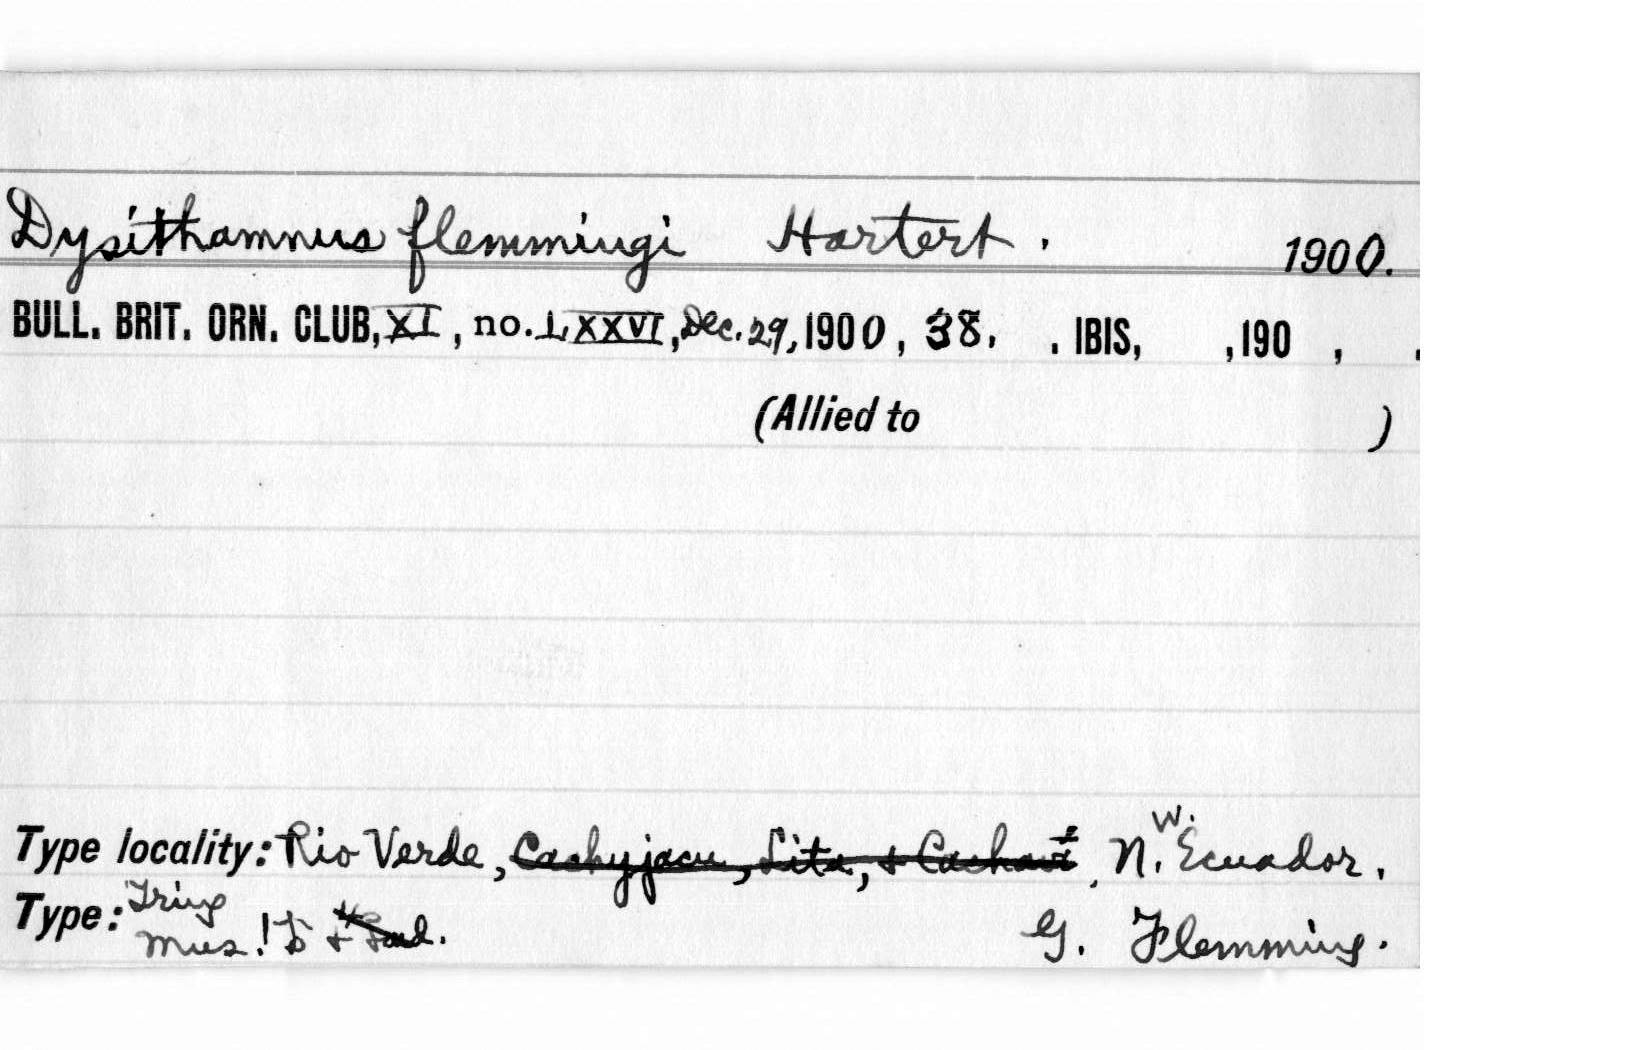 Dysithamnus flemmingi Hartert. 1900.
BULL. BRIT. ORN. CLUB, XI, no. LXXVI, Dec. 29, 1900, 38. . IBIS, ,190 , .
(Allied to )
Type locality: Rio Verde, Cachyjacu, Lita, + Cachaví, N.W. Ecuador.
Type: Tring Mus.! + ad. G. Flemming.